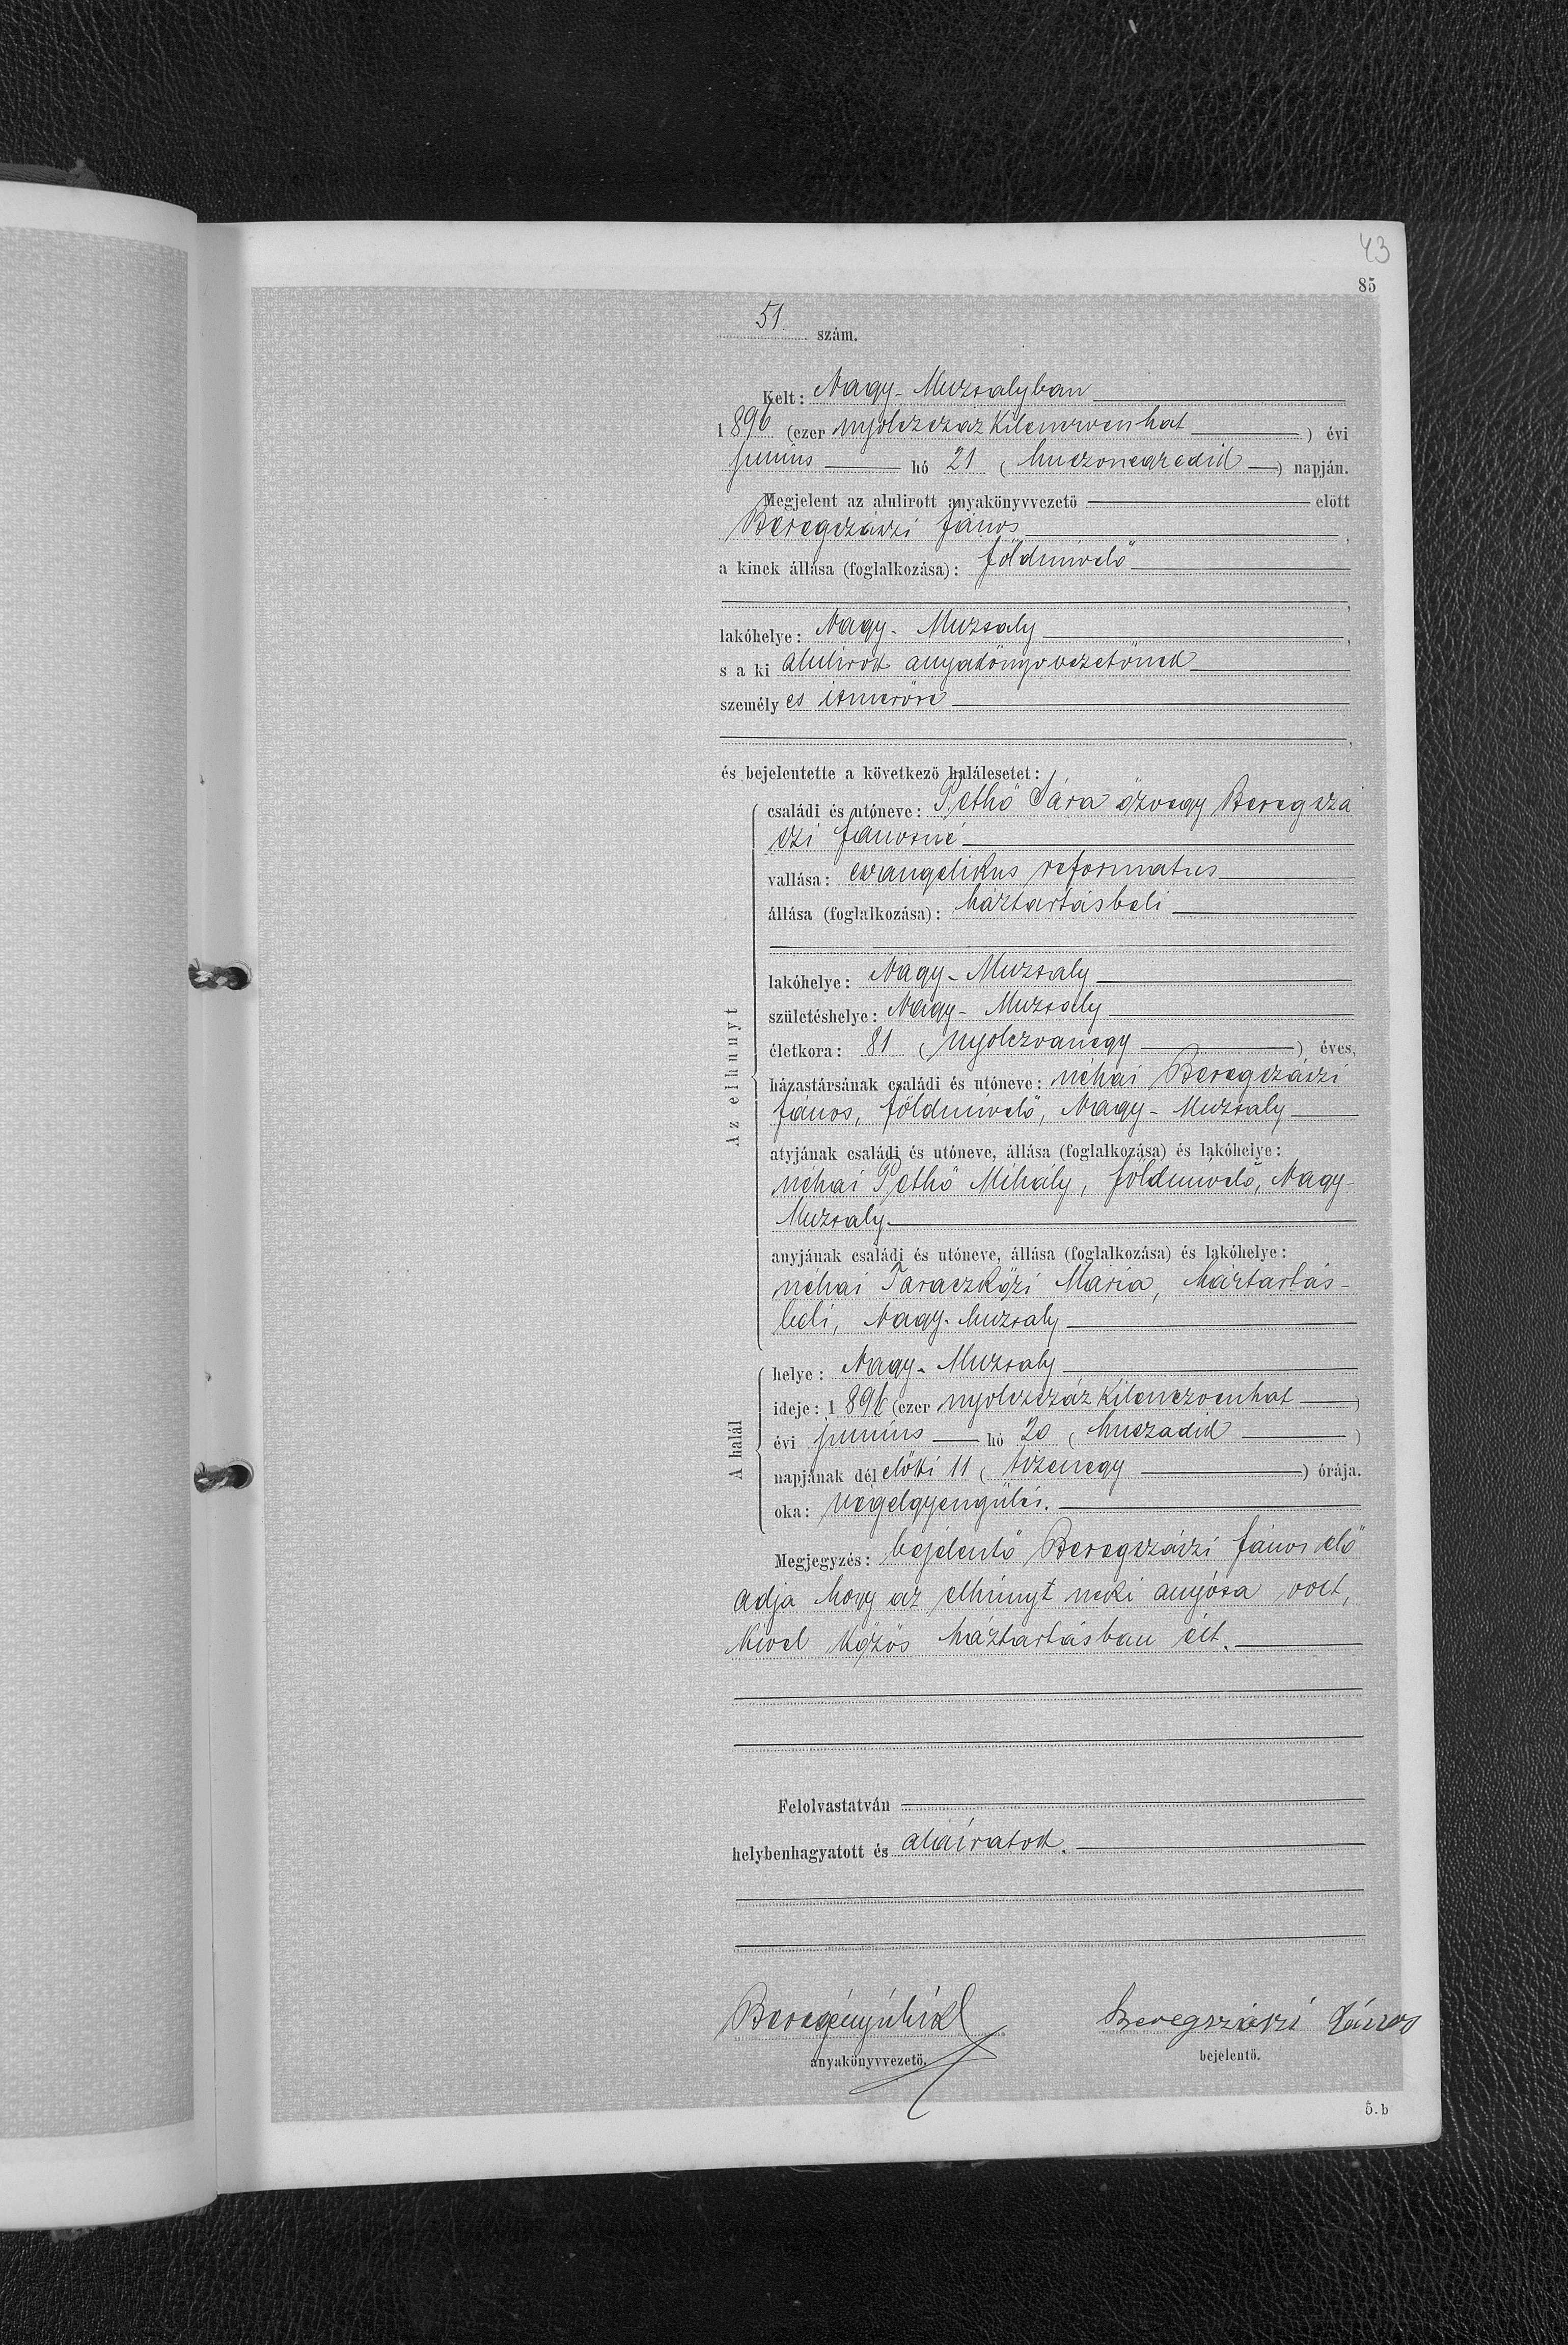 43
85
51. szám.
Kelt: Nagy-Muzsalyban
1896 (ezer nyolczszáz kilenczvenhat) évi
junius hó 21 (huszonegyedik) napján.
Megjelent az alulirott anyakönyvvezető előtt
Beregszászi János,
a kinek állása (foglalkozása): földmivelő
,
lakóhelye: Nagy-Muzsaly,
s a ki alulirott anyakönyvvezetőnek
személyes ismerőse
,
és bejelentette a következő halálesetet:
Az elhunyt
családi és utóneve: Pethő Sára özvegy Beregszá
szi Jánosné
vallása: evangelikus reformatus
állása (foglalkozása): háztartásbeli
lakóhelye: Nagy-Muzsaly
születéshelye: Nagy-Muzsaly
életkora: 81 (nyolczvanegy) éves,
házastársának családi és utóneve: néhai Beregszászi
János, földmivelő, Nagy-Muzsaly
atyjának családi és utóneve, állása (foglalkozása) és lakóhelye:
néhai Pethő Mihály, földmivelő, Nagy-
Muzsaly
anyjának családi és utóneve, állása (foglalkozása) és lakóhelye:
néhai Taraczközi Mária, háztartás-
beli, Nagy-Muzsaly
A halál
helye: Nagy-Muzsaly
ideje: 1896 (ezer nyolczszáz kilenczvenhat)
évi junius hó 20 (huszadik)
napjának délelőtti 11 (tizenegy) órája.
oka: végelgyengülés.
Megjegyzés: bejelentő Beregszászi János elő
adja hogy az elhúnyt neki anyósa volt,
kivel közös háztartásban élt.
Felolvastatván
helybenhagyatott és aláiratott.
Beregszászi János
anyakönyvvezető.
bejelentő.
5.b